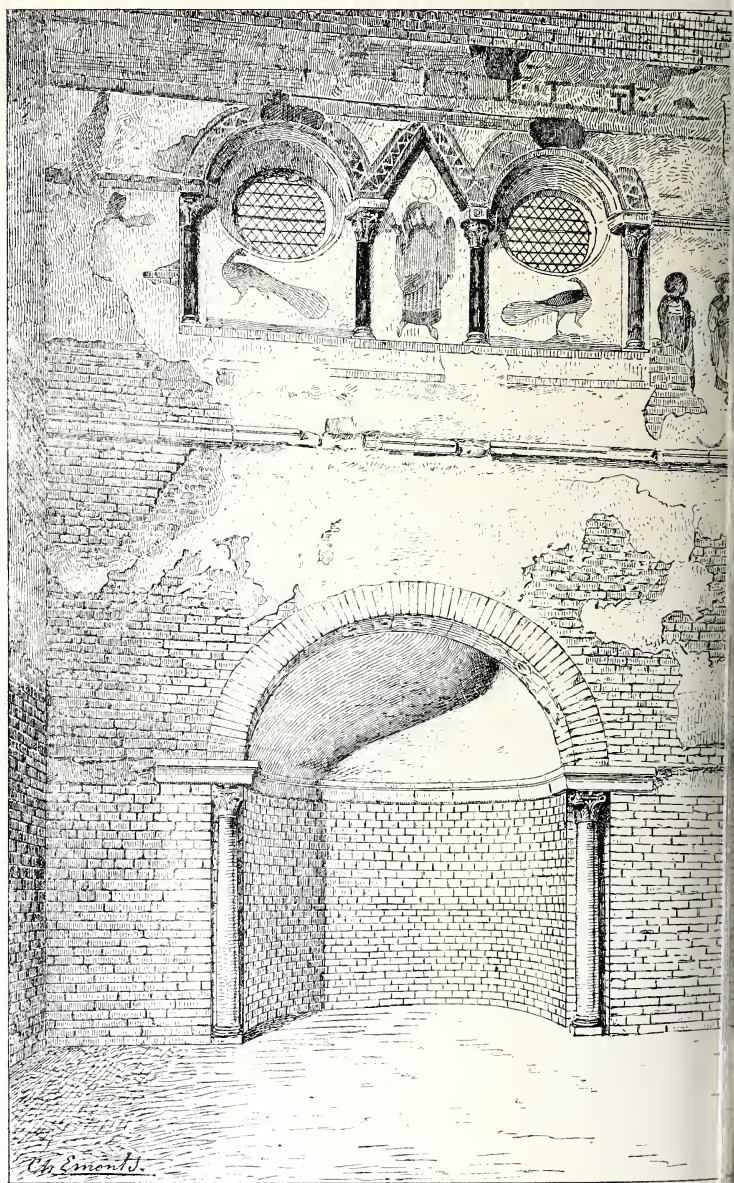 Ch. Emonts.